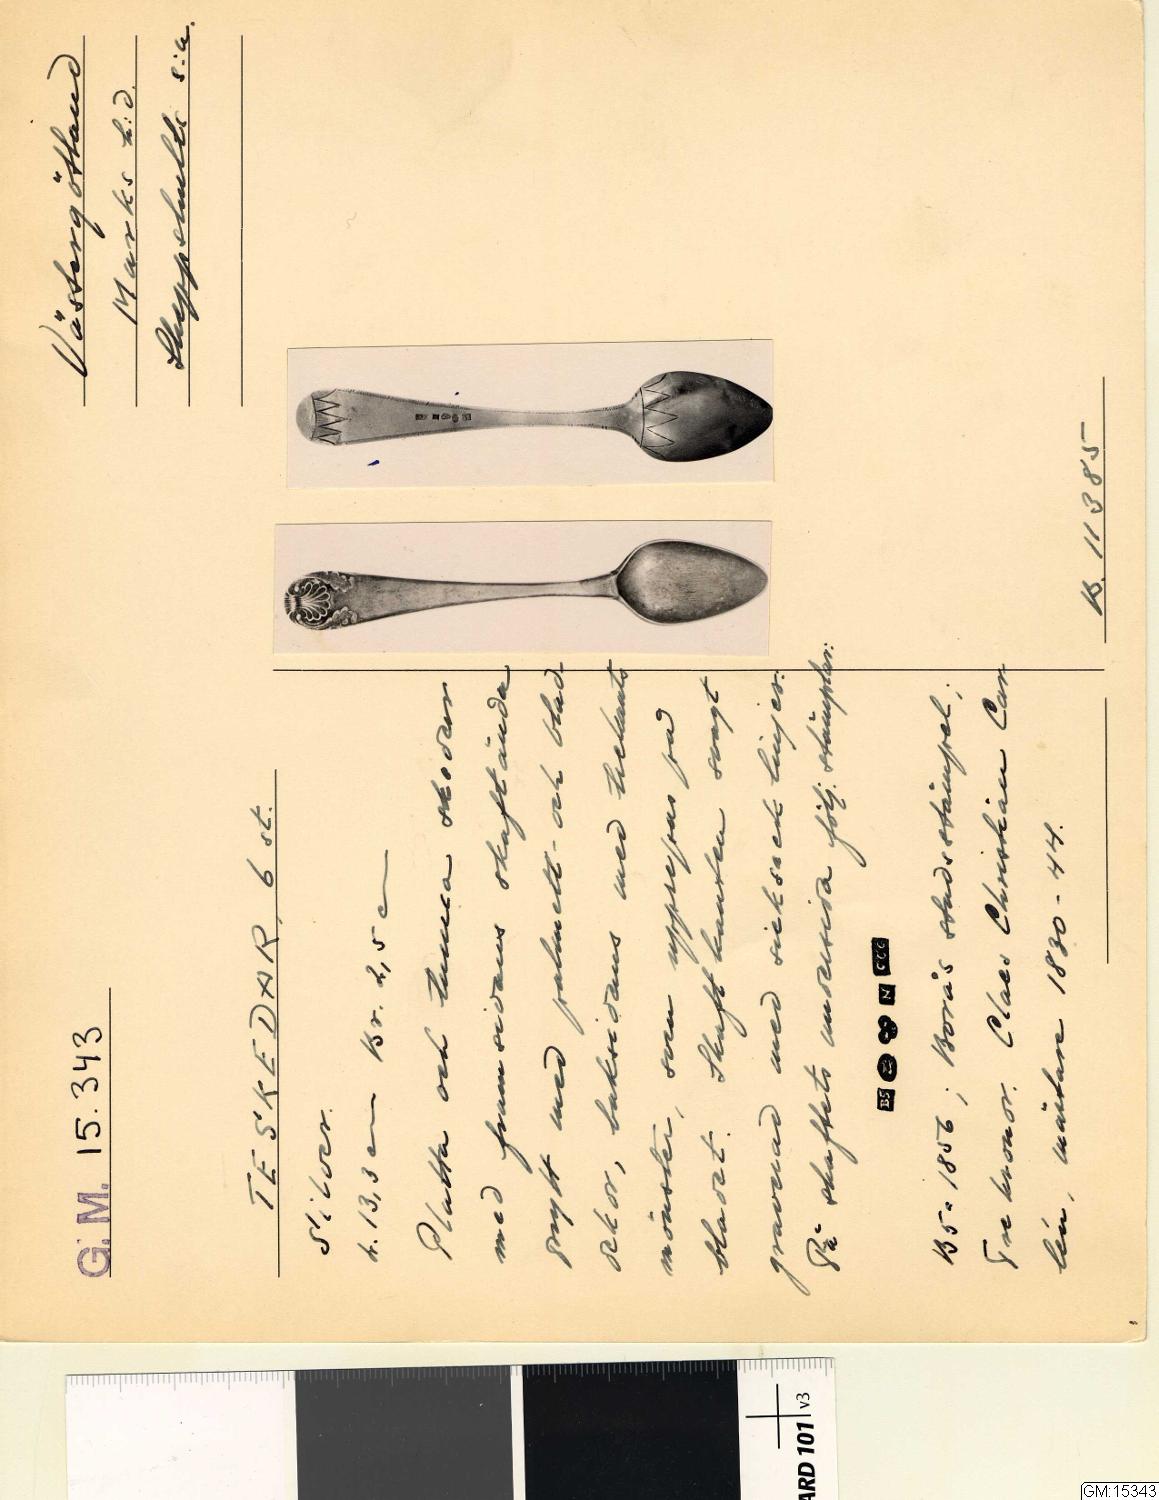 G.M. 15.343
Västergötland
Marks h:d.
s:n.
TESKEDAR, 6 st.
Silver.
L. 13,3 cm Br. 2,5 cm
Platta och tunna skedar
med framsidans skaftända
prytt med palmett- och blad
ockor, baksidans med trekants
mönster, som upprepas på
bladet. Skaftkanten svagt
graverad med sicksack linjer.
På skaftets undersida följ. stämplar:
B5 N CCC
B5 = 1856; Borås stadsstämpel;
Tre kronor. Claes Christian Car
lén, mästare 1830-44.
B. 11385
ARD 101 v3
GM:15343